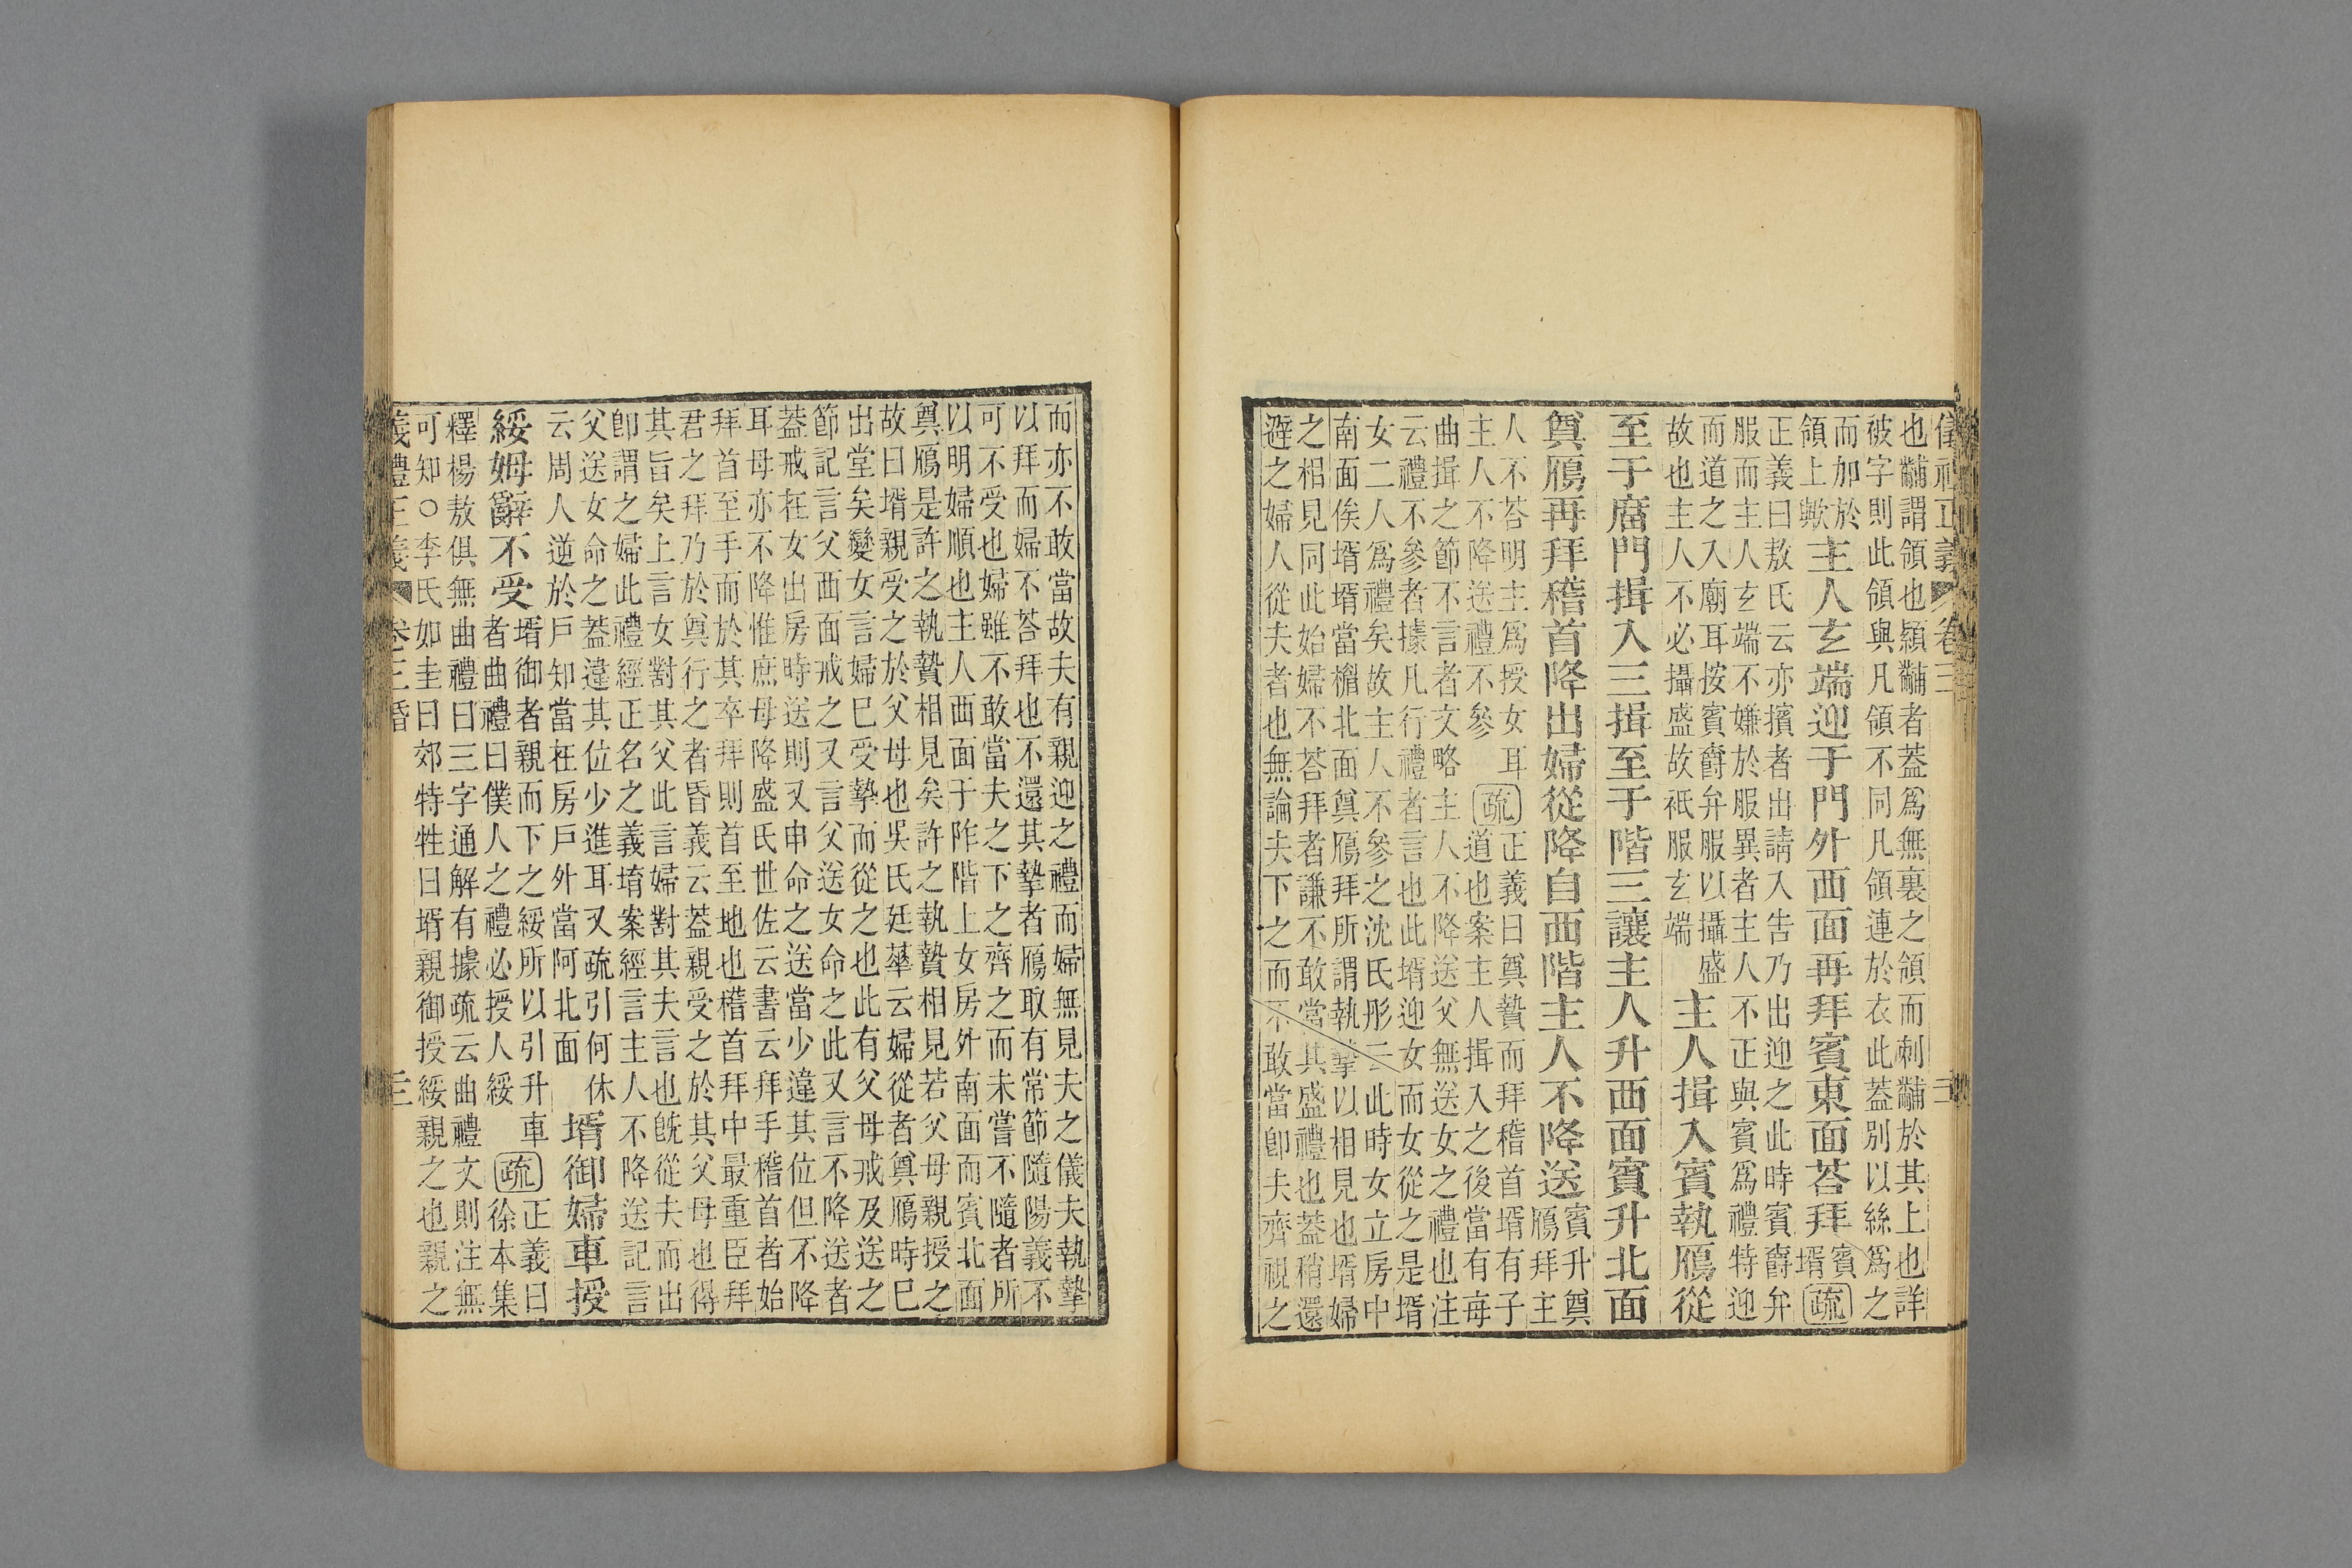 儀禮正義 卷三 三
也黼謂領也穎黼者蓋爲無裏之領而刺黼於其上也詳
被字則此領與凡領不同凡領連於衣此蓋別以絲爲之
而加於
領上歟
主人玄端迎于門外西面再拜賓東面荅拜
賓
壻
疏
正義曰敖氏云亦擯者出請入告乃出迎之此時賓爵弁
服而主人玄端不嫌於服異者主人不正與賓爲禮特迎
而道之入廟耳按賓爵弁服以攝盛
故也主人不必攝盛故祇服玄端
主人揖入賓執鴈從
至于廟門揖入三揖至于階三讓主人升西面賓升北面
奠鴈再拜稽首降出婦從降自西階主人不降送
賓升奠
鴈拜主
人不荅明主爲授女耳
主人不降送禮不參
疏
正義曰奠贄而拜稽首壻有子
道也案主人揖入之後當有每
曲揖之節不言者文略主人不降送父無送女之禮也注
云禮不參者據凡行禮者言也此壻迎女而女從之是壻
女二人爲禮矣故主人不參之沈氏彤云此時女立房中
南面俟壻壻當楣北面奠鴈拜所謂執摯以相見也壻婦
之相見同此始婦不荅拜者謙不敢當其盛禮也蓋稍還
避之婦人從夫者也無論夫下之而不敢當卽夫齊視之
而亦不敢當故夫有親迎之禮而婦無見夫之儀夫執摯
以拜而婦不荅拜也不還其摯者鴈取有常節隨陽義不
可不受也婦雖不敢當夫之下之齊之而未嘗不隨者所
以明婦順也主人西面于阼階上女房外南面而賓北面
奠鴈是許之執贄相見矣許之執贄相見若父母親授之
故曰壻親受之於父母也吳氏廷華云婦從者奠鴈時已
出堂矣變女言婦已受摯而從之也此有父母戒及送之
節記言父西面戒之又言父送女命之此又言不降送者
蓋戒在女出房時送則又申命之送當少違其位但不降
耳母亦不降惟庶母降盛氏世佐云書云拜手稽首者始
拜首至手而於其卒拜則首至地也稽首拜中最重臣拜
君之拜乃於奠行之者昏義云蓋親受之於其父母也得
其旨矣上言女對其父此言婦對其夫言也旣從夫而出
卽謂之婦此禮經正名之義堉案經言主人不降送記言
父送女命之蓋違其位少進耳又疏引何休
云周人逆於戶知當在房戶外當阿北面
壻御婦車授
綏姆辭不受
壻御者親而下之綏所以引升車
者曲禮曰僕人之禮必授人綏
疏
正義曰
徐本集
釋楊敖俱無曲禮曰三字通解有據疏云曲禮文則注無
可知○李氏如圭曰郊特牲曰壻親御授綏親之也親之
義禮正義 卷三 昏 三